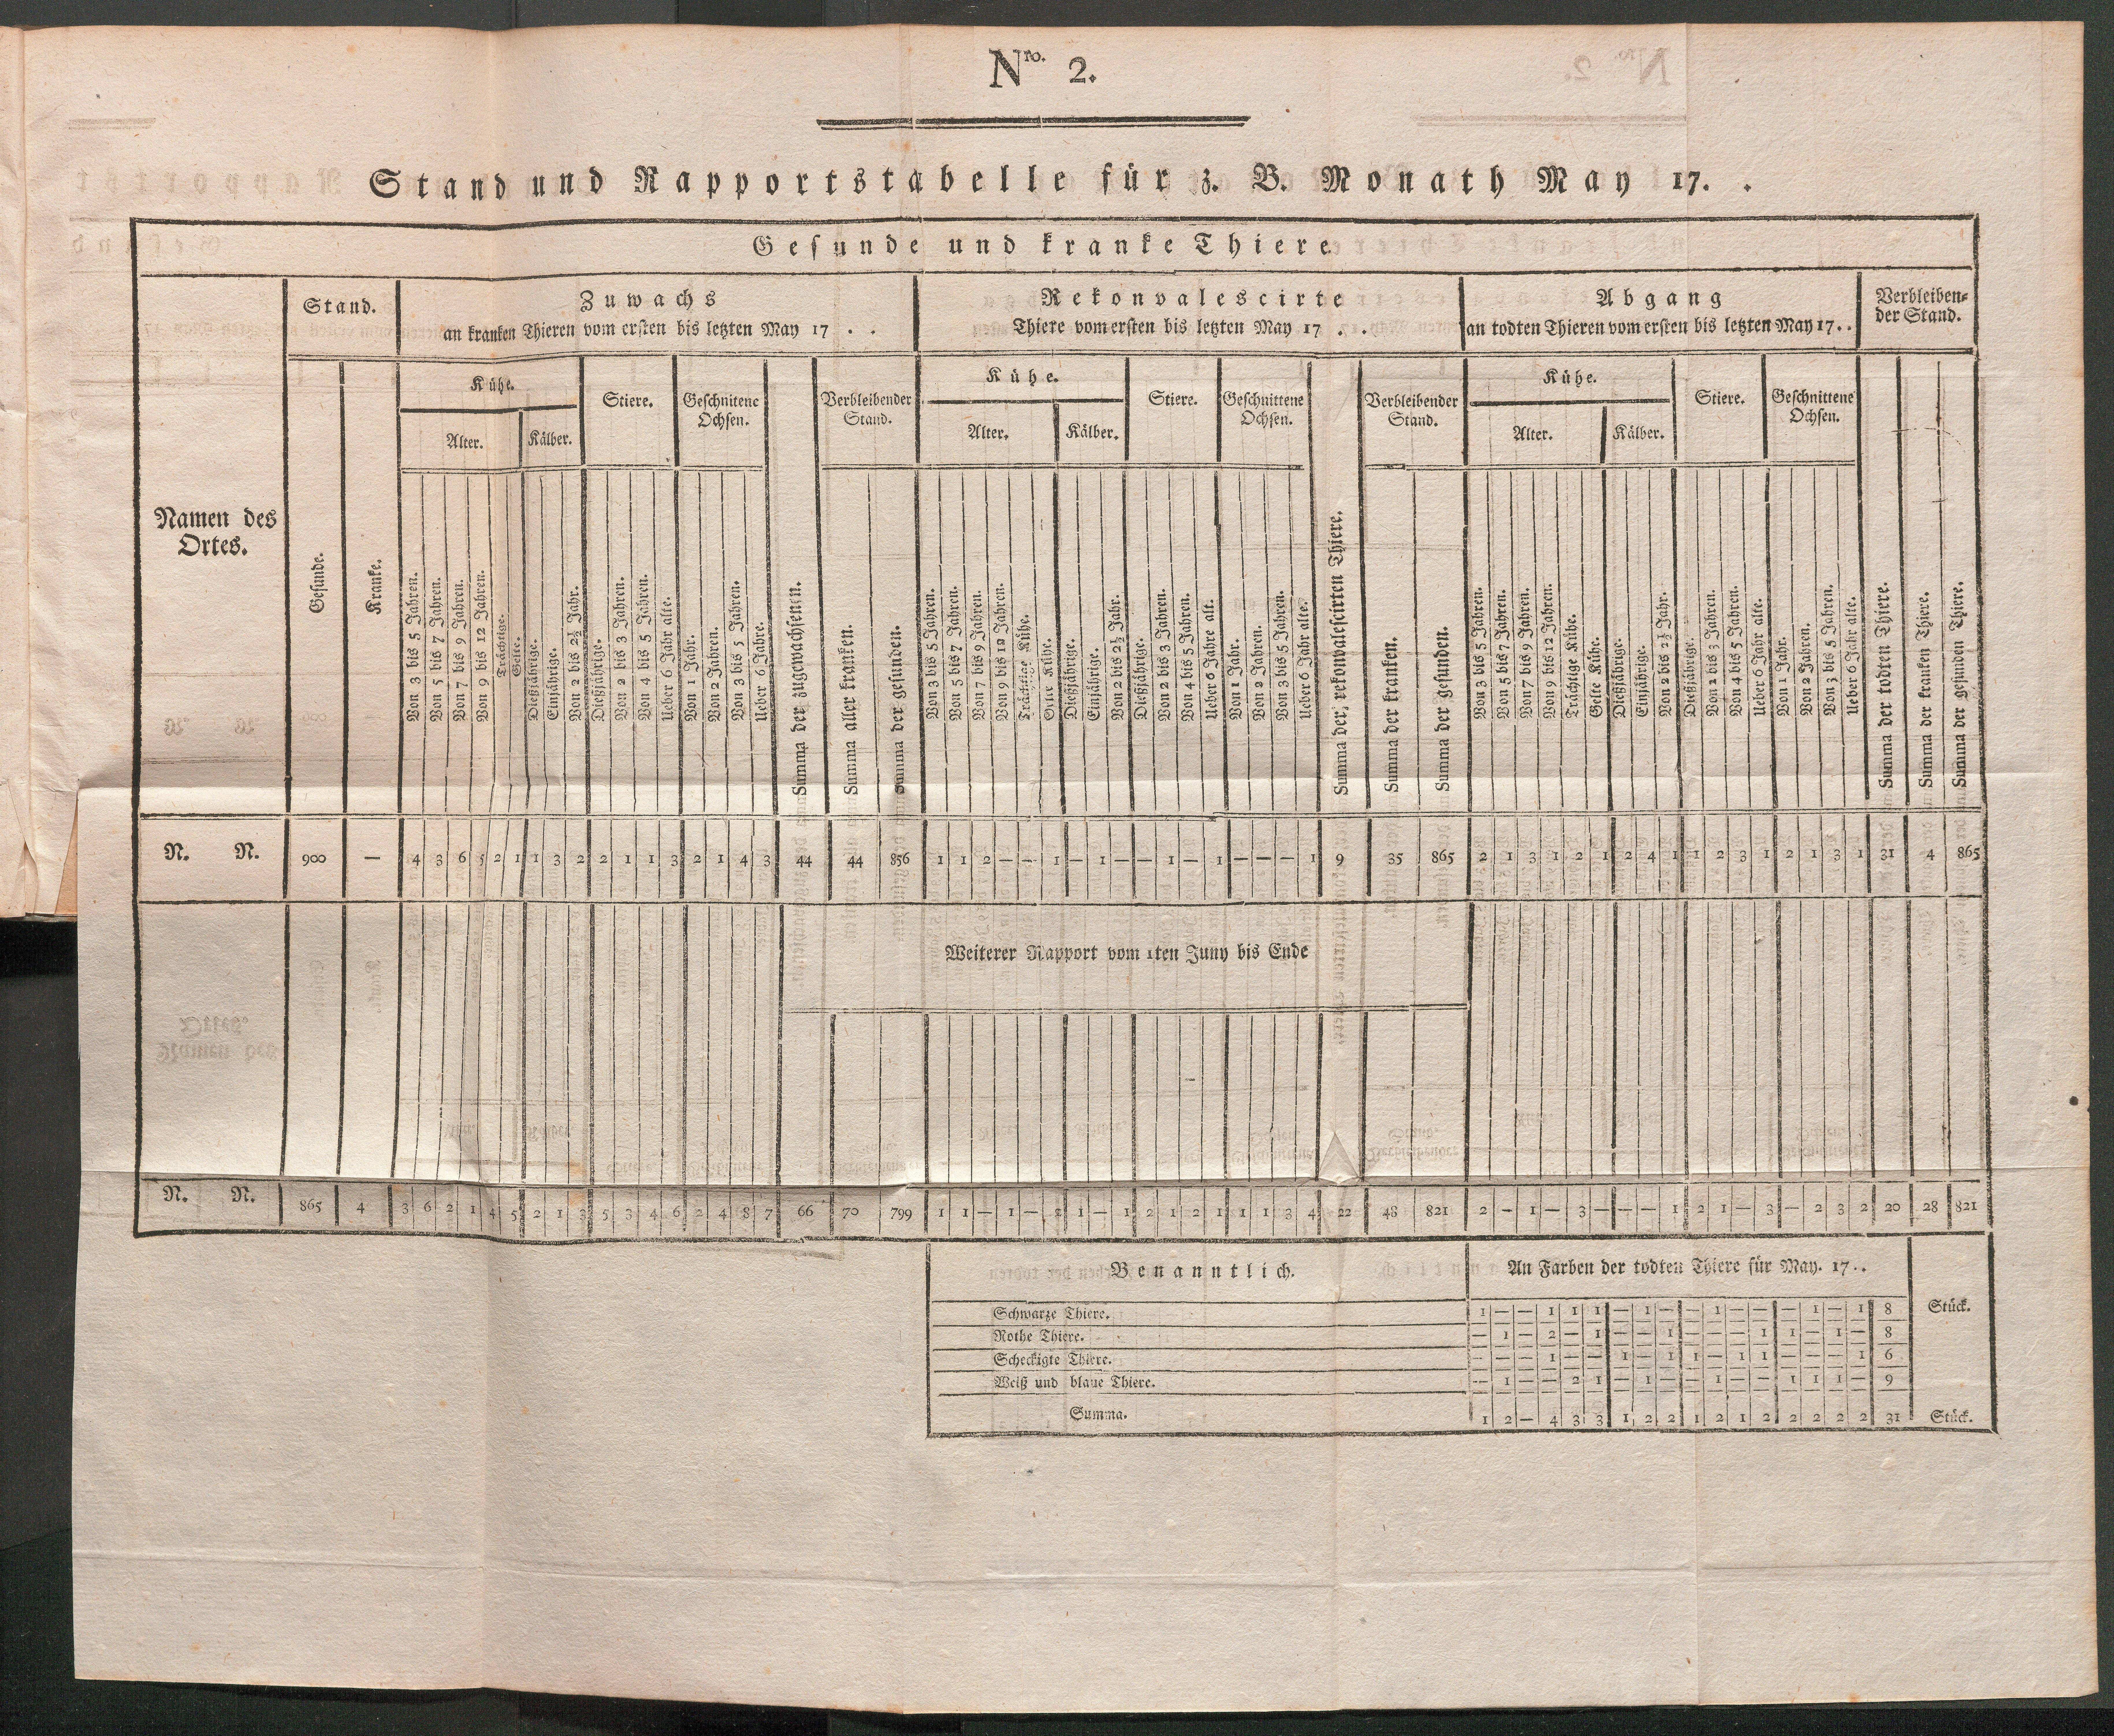 Nro. 2.
Stand und Rapportstabelle für z. B. Monath May 17. .
Gesunde und kranke Thiere
Namen des
Ortes.
Stand.
Gesunde.
Kranke.
Zuwachs
an kranken Thieren vom ersten bis letzten May 17 . .
Kühe.
Alter.
Kälber.
Stiere.
Geschnittene
Ochsen.
Von 3 bis 5 Jahren.
Von 5 bis 7 Jahren.
Von 7 bis 9 Jahren.
Von 9 bis 12 Jahren.
Trächtige.
Gelte.
Dießjährige.
Einjährige.
Von 2 bis 2½ Jahr.
Dießjährige.
Von 2 bis 3 Jahren.
Von 4 bis 5 Jahren.
Ueber 6 Jahr alte.
Von 1 Jahr.
Von 2 Jahren.
Von 3 bis 5 Jahren.
Ueber 6 Jahre.
Summa der zugewachsenen.
Verbleibender
Stand.
Summa aller kranken.
Summa der gesunden.
Rekonvalescirte
Thiere vom ersten bis letzten May 17 . . .
Kühe.
Alter.
Kälber.
Stiere.
Geschnittene
Ochsen.
Von 3 bis 5 Jahren.
Von 5 bis 7 Jahren.
Von 7 bis 9 Jahren.
Von 9 bis 12 Jahren.
Trächtige Kühe.
Gelte Kühe.
Dießjährige.
Einjährige.
Von 2 bis 2½ Jahr.
Dießjährige.
Von 2 bis 3 Jahren.
Von 4 bis 5 Jahren.
Ueber 6 Jahre alt.
Von 1 Jahr.
Von 2 Jahren.
Von 3 bis 5 Jahren.
Ueber 6 Jahr alte.
Summa der rekonvalescirten Thiere.
Verbleibender
Stand.
Summa der kranken.
Summa der gesunden.
Abgang
an todten Thieren vom ersten bis letzten May 17. .
Kühe.
Alter.
Kälber.
Stiere.
Geschnittene
Ochsen.
Von 3 bis 5 Jahren.
Von 5 bis 7 Jahren.
Von 7 bis 9 Jahren.
Von 9 bis 12 Jahren.
Trächtige Kühe.
Gelte Kühe.
Dießjährige.
Einjährige.
Von 2 bis 2½ Jahr.
Dießjährige.
Von 2 bis 3 Jahren.
Von 4 bis 5 Jahren.
Ueber 6 Jahr alte.
Von 1 Jahr.
Von 2 Jahren.
Von 3 bis 5 Jahren.
Ueber 6 Jahr alte.
Verbleiben-
der Stand.
Summa der todten Thiere.
Summa der kranken Thiere.
Summa der gesunden Thiere.
N. N. 900 — 4 3 6 5 2 1 1 3 2 2 1 1 3 2 1 4 3 44 44 856 1 1 2 — — 1 — 1 — — 1 — 1 — — — 1 9 35 865 2 1 3 1 2 1 2 4 1 1 2 3 1 2 1 3 1 31 4 865
Weiterer Rapport vom 1ten Juny bis Ende
N. N. 865 4 3 6 2 1 4 5 2 1 3 5 3 4 6 2 4 8 7 66 70 799 1 1 — 1 — 2 1 — 1 2 1 2 1 1 1 3 4 22 48 821 2 — 1 — 3 — — — 1 2 1 — 3 — 2 3 2 20 28 821
Benanntlich. An Farben der todten Thiere für May. 17. .
Schwarze Thiere. 1 — — 1 1 1 — 1 — — 1 — — — 1 — 1 8 Stück.
Rothe Thiere. — 1 — 2 — 1 — — 1 — — — 1 1 — 1 — 8
Scheckigte Thiere. — — — 1 — — 1 — 1 1 — 1 1 — — — 1 6
Weiß und blaue Thiere. — 1 — — 2 1 — 1 — — 1 — — 1 1 1 — 9
Summa. 1 2 — 4 3 3 1 2 2 1 2 1 2 2 2 2 2 31 Stück.